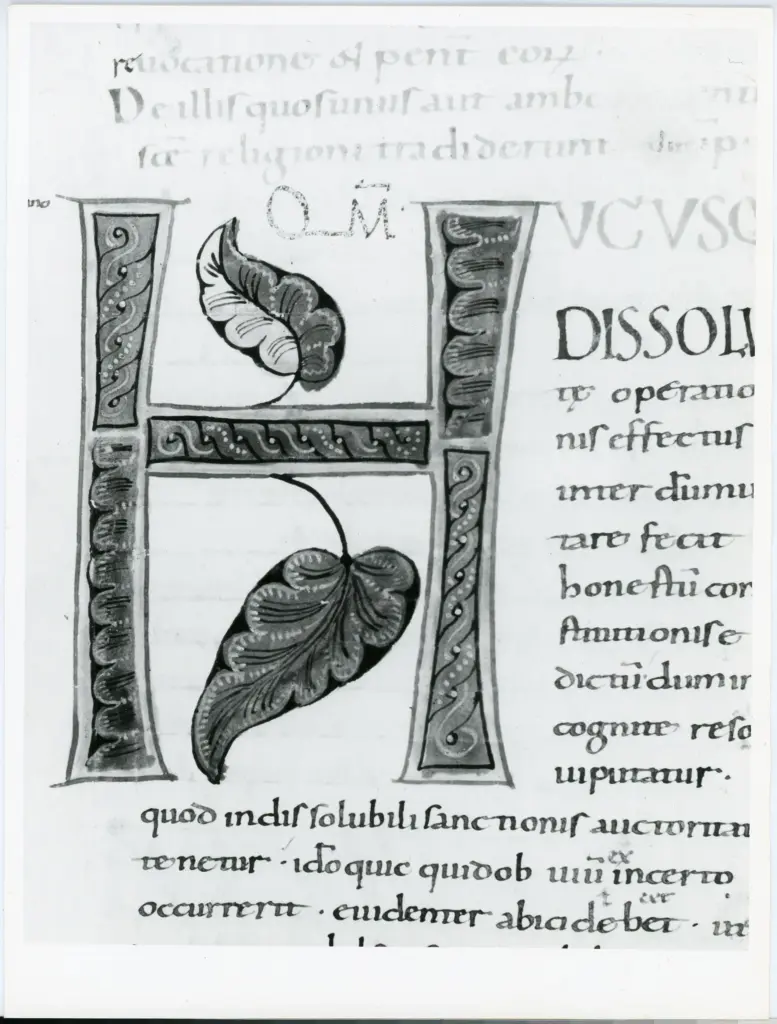 revocatione & penit̄ eoꝝ.
De illis quos unus aut ambo
sc̄e religioni tradiderunt
H UCUSQ
DISSOLV
tę operatio
nis effectus
inter dum̄ mu
tare fecit
honestū con
stitutionis e
dictū dum in
cognite reso
ui putatur.
quod indissolubili sanctionis auctoritat
tenetur · id̄o quic quid ob uiū incerto
occurrerit · euidenter abici debet · in